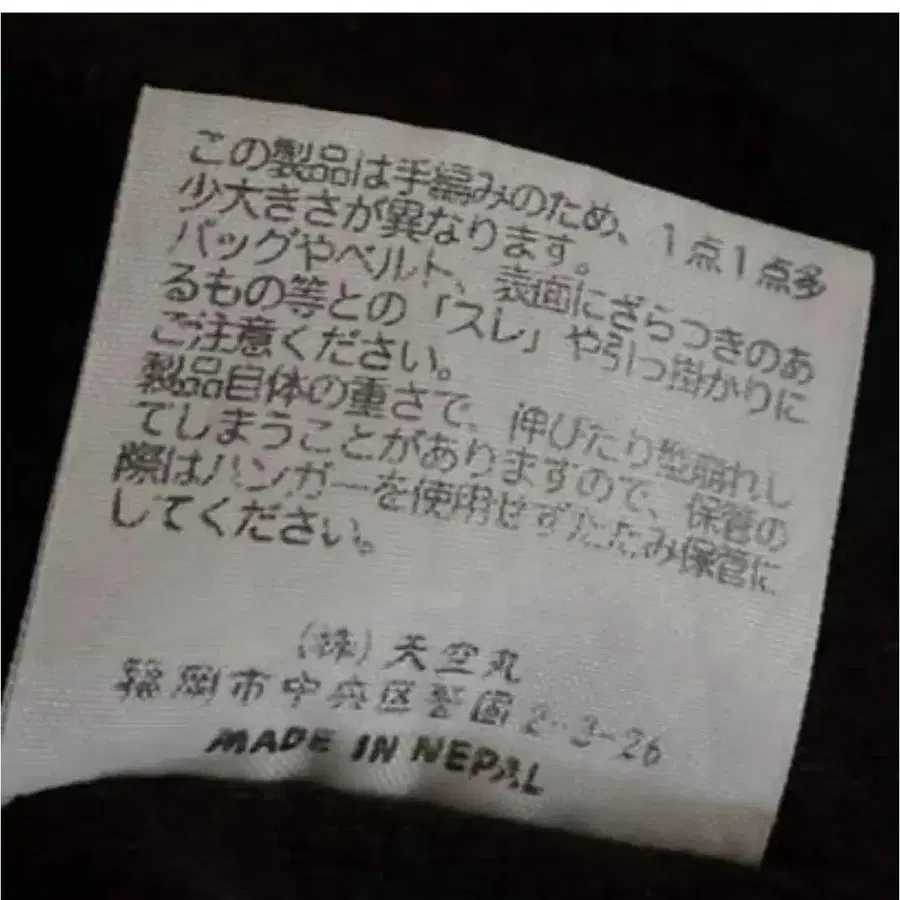 この製品は手編みのため、１点１点多
少大きさが異なります。
バッグやベルト、表面にざらつきのあ
るもの等との「スレ」や引っ掛かりに
ご注意ください。
製品自体の重さで、伸びたり型崩れし
てしまうことがありますので、保管の
際はハンガーを使用せずたたみ保管に
してください。
(株)天空丸
福岡市中央区警固2-3-26
MADE IN NEPAL